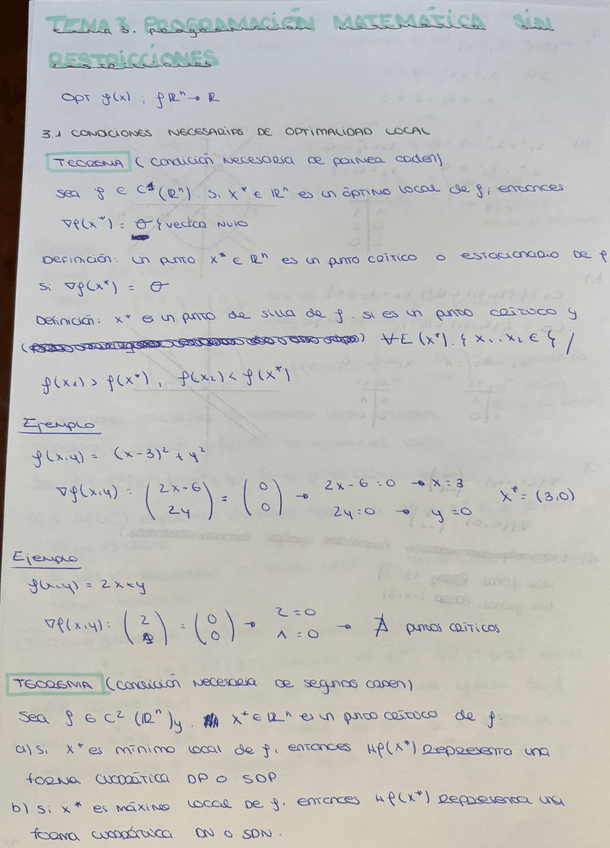 TEMA 3. PROGRAMACIÓN MATEMÁTICA SIN
RESTRICCIONES
OPT f(x) ; f: ℝⁿ → ℝ
3.1 CONDICIONES NECESARIAS DE OPTIMALIDAD LOCAL
TEOREMA (Condición necesaria de primer orden)
Sea f ∈ C¹(ℝⁿ). Si x* ∈ ℝⁿ es un óptimo local de f, entonces
∇f(x*) = θ vector nulo
Definición: un punto x* ∈ ℝⁿ es un punto crítico o estacionario de f
si ∇f(x*) = θ
Definición: x* es un punto de silla de f. si es un punto crítico y
∀E(x*). ∃ x₁, x₂ ∈ E /
f(x₁) > f(x*), f(x₂) < f(x*)
Ejemplo
f(x,y) = (x-3)² + y²
∇f(x,y) = (2x-6 2y) = (0 0) → 2x-6=0 → x=3 2y=0 → y=0 x* = (3,0)
Ejemplo
f(x,y) = 2x+y
∇f(x,y) = (2 1) = (0 0) → 2=0 1=0 → ∄ puntos críticos
TEOREMA (Condición necesaria de segundo orden)
Sea f ∈ C²(ℝⁿ) y x* ∈ ℝⁿ es un punto crítico de f.
a) Si x* es mínimo local de f, entonces Hf(x*) representa una
forma cuadrática DP o SDP
b) Si x* es máximo local de f, entonces Hf(x*) representa una
forma cuadrática DN o SDN.